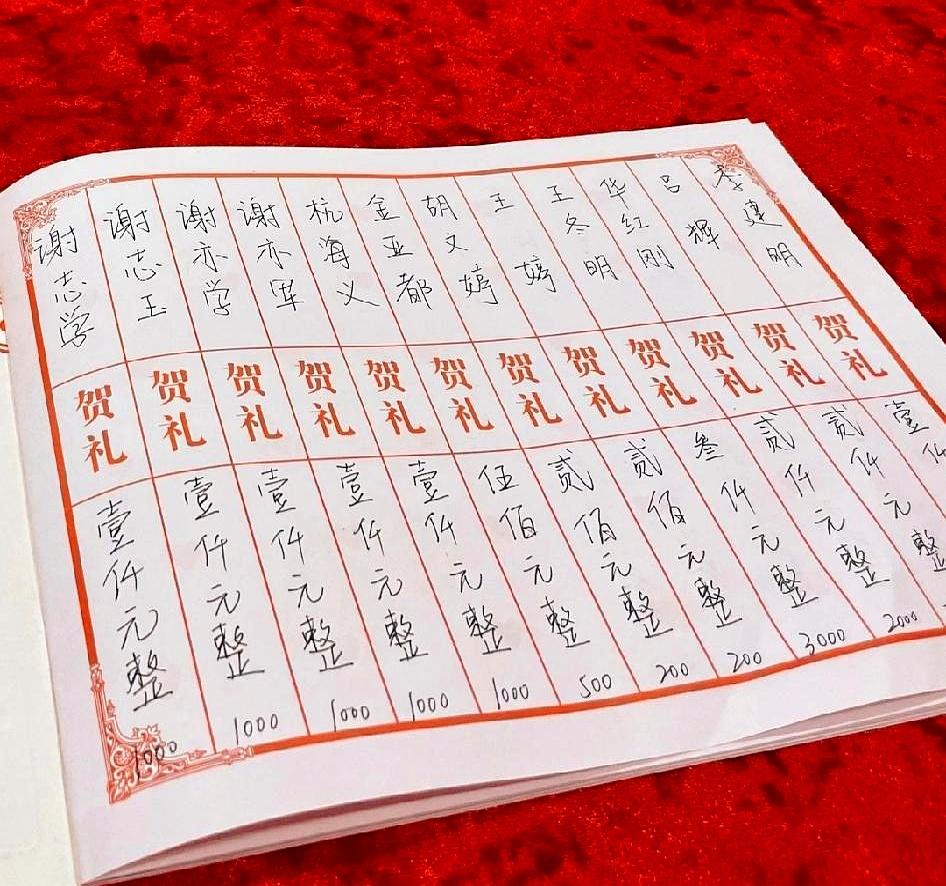 李建明 贺礼 壹仟
吕辉 贺礼 贰仟元整
华红刚 贺礼 贰仟元整 2000
王冬明 贺礼 叁仟元整 3000
王婷 贺礼 贰佰元整 200
胡又婷 贺礼 贰佰元整 200
金亚都 贺礼 伍佰元整 500
杭海义 贺礼 壹仟元整 1000
谢亦军 贺礼 壹仟元整 1000
谢亦学 贺礼 壹仟元整 1000
谢志王 贺礼 壹仟元整 1000
谢志学 贺礼 壹仟元整 1000